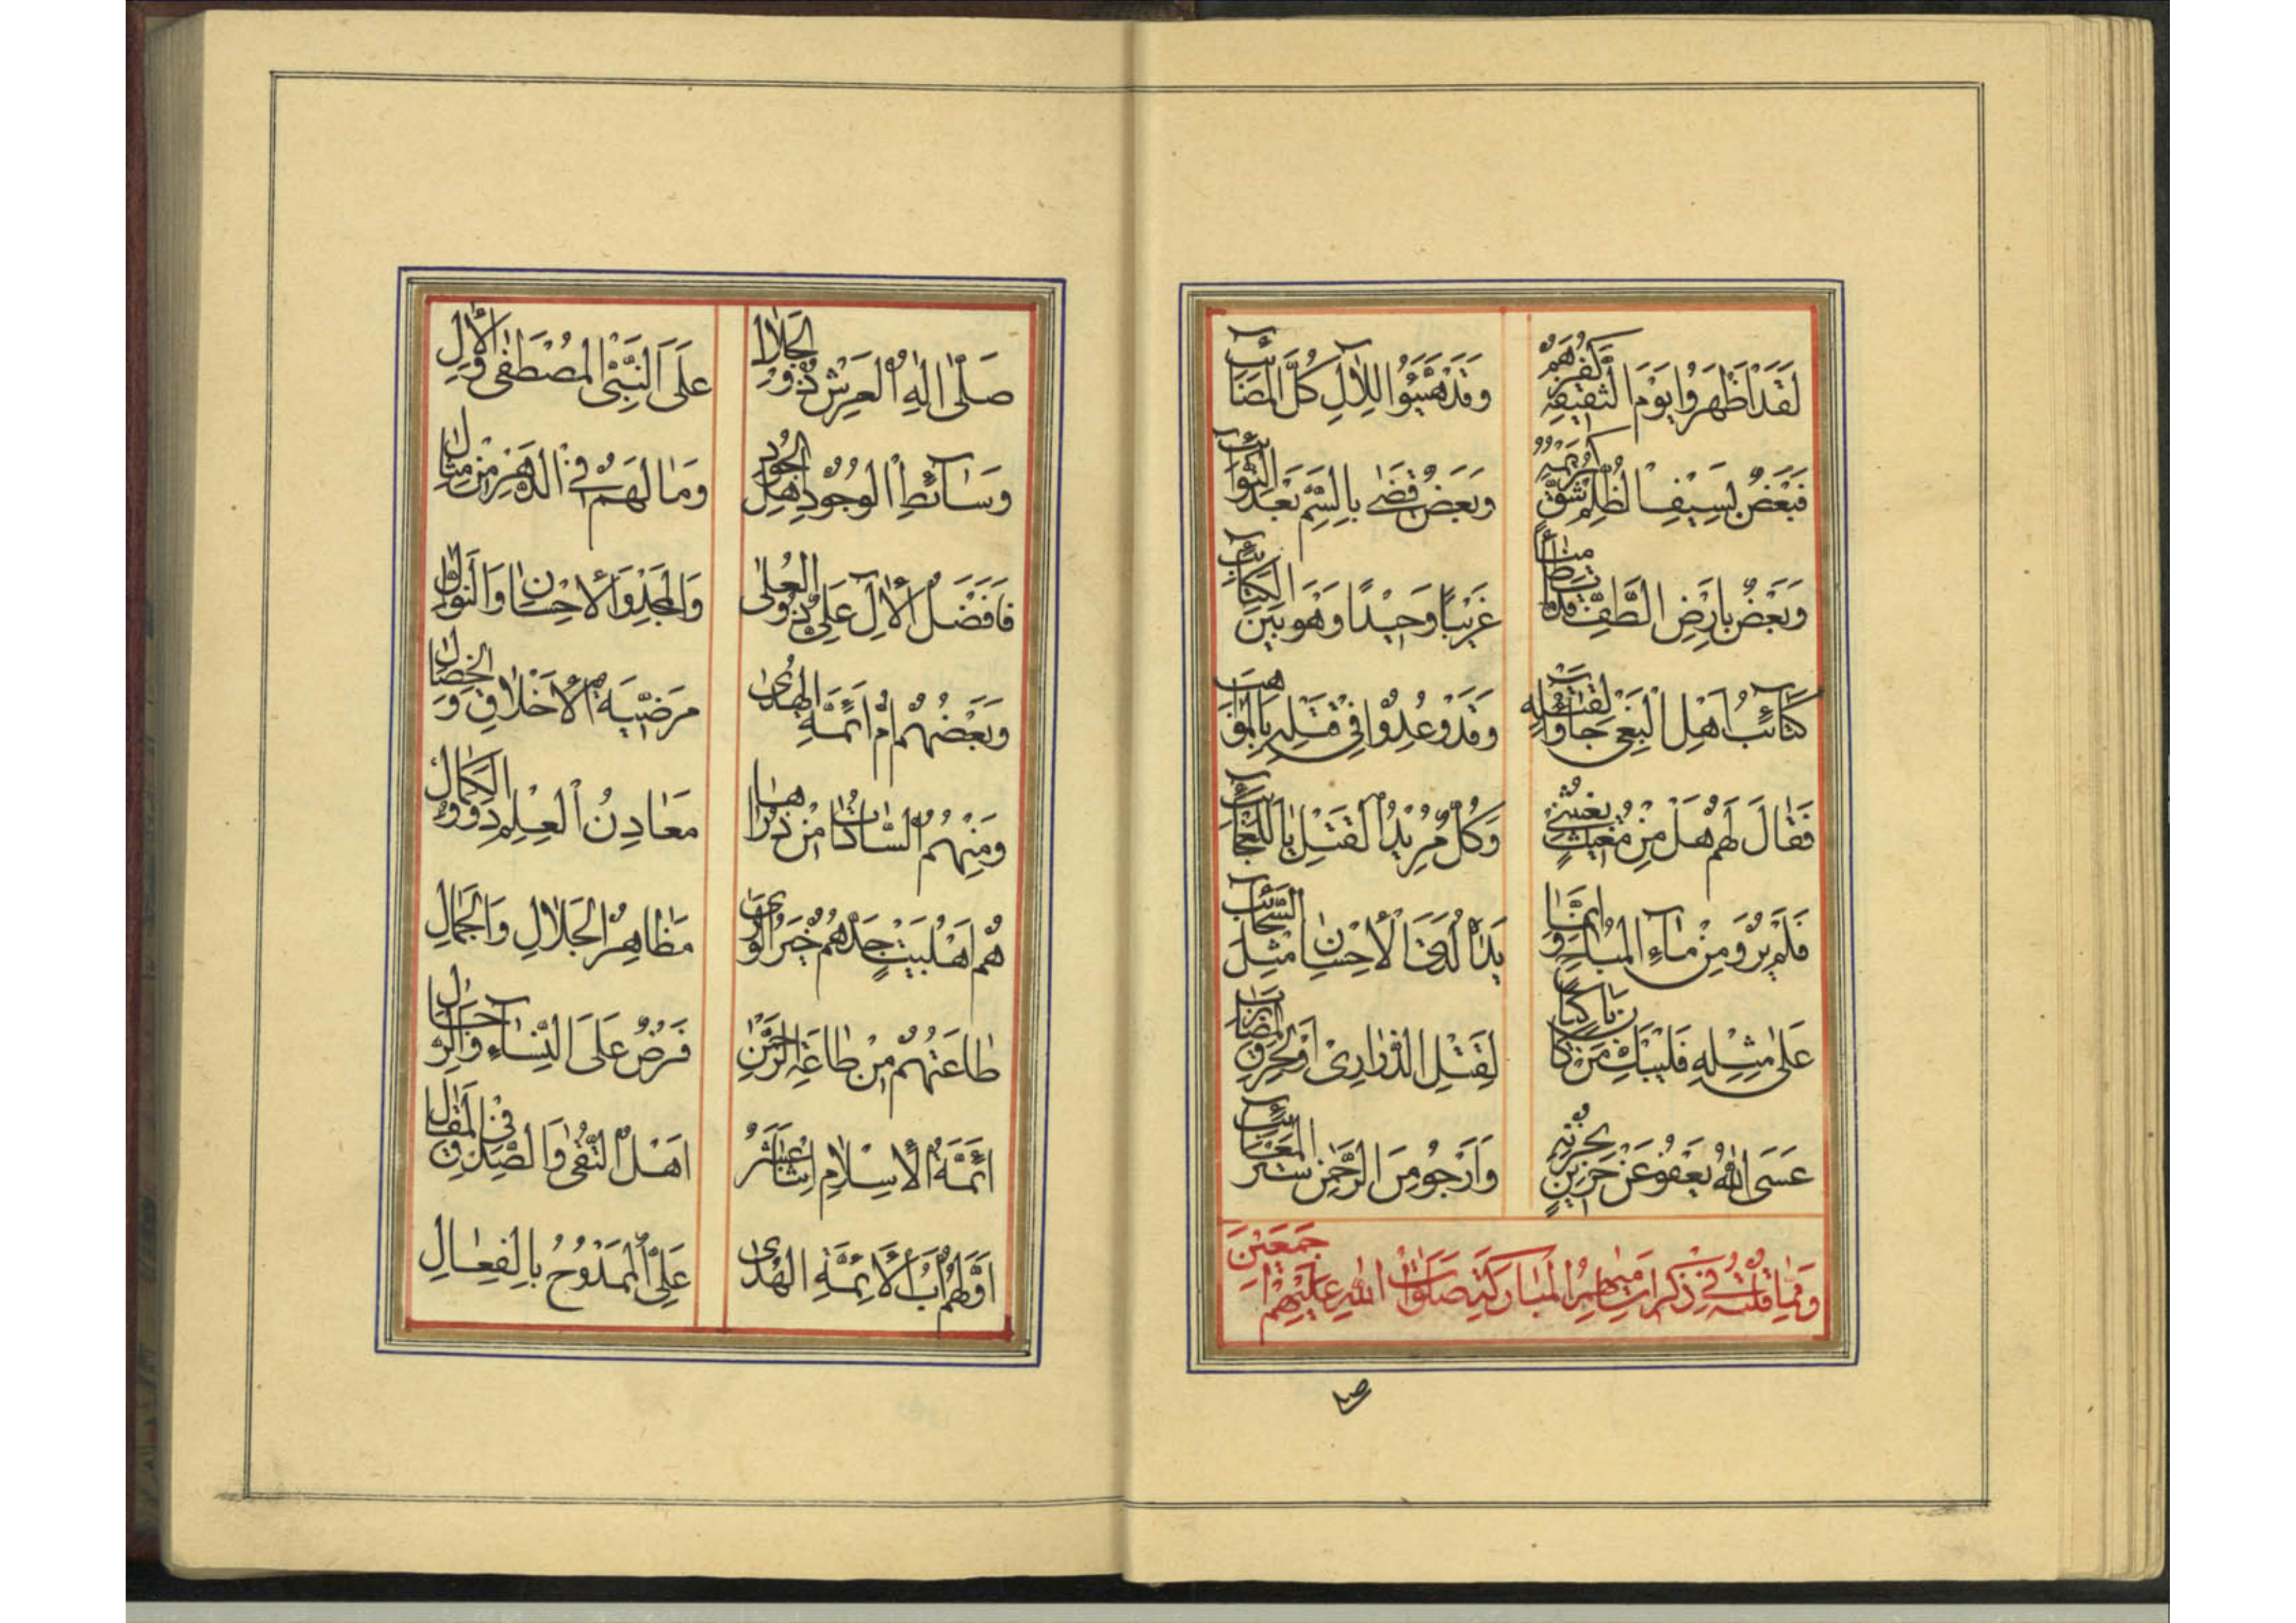 لَقَدْ اَظْهَرُوا يَوْمَ الثَّقِيفَةِ كُفْرَهُمْ وَقَدْ هَيَّئُوا لِلْآلِ كُلَّ الْمَصَائِبِ
فَبَعْضٌ بِسَيْفِ الظُّلْمِ شُقَّ كَرِيمُهُ وَبَعْضٌ قَضٰى بِالسَّمِّ بَعْدَ النَّوَائِبِ
وَبَعْضٌ بِاَرْضِ الطَّفِّ قَدْ مَاتَ ظَامِئًا غَرِيبًا وَحِيدًا وَهْوَ بَيْنَ الْكَتَائِبِ
كَتَائِبُ اَهْلِ الْبَغْيِ جَاؤُا لِقَتْلِهِ وَقَدْ وُعِدُوا فِي قَتْلِهِ بِالْمَوَاهِبِ
فَقَالَ لَهُمْ هَلْ مِنْ مُغِيثٍ يُغِيثُنِي وَكُلٌّ مُرِيدُ الْقَتْلِ يَا لَلْعَجَائِبِ
فَلَمْ يُرْوَ مِنْ مَاءِ الْمُبَاحِ وَاِنَّمَا يَدَاهُ لَدَى الْاِحْسَانِ مِثْلُ السَّحَائِبِ
عَلٰى مِثْلِهِ فَلْيَبْكِ مَنْ كَانَ بَاكِيًا لِقَتْلِ الذَّرَارِي اَوْ لِحَرْقِ الْمَضَارِبِ
عَسَى اللهُ يَعْفُو عَنْ حَزِينٍ بِحُزْنِهِ وَاَرْجُو مِنَ الرَّحْمٰنِ سَتْرَ الْمَعَائِبِ
وَمِمَّا قُلْتُهُ فِي ذِكْرِ اَسَامِيهِمُ الْمُبَارَكَةِ صَلَوَاتُ اللهِ عَلَيْهِمْ اَجْمَعِينَ
صَلّٰى اِلٰهُ الْعَرْشِ ذُو الْجَلَالِ عَلَى النَّبِيِّ الْمُصْطَفٰى وَالْآلِ
وَسَائِطِ الْوُجُودِ اَهْلِ الْجُودِ وَمَا لَهُمْ فِي الدَّهْرِ مِنْ مِثَالِ
فَاَفْضَلُ الْآلِ عَلِيٌّ ذُو الْعُلٰى وَالْمَجْدِ وَالْاِحْسَانِ وَالنَّوَالِ
وَبَعْضُهُمْ اُمُّ اَئِمَّةِ الْهُدٰى مَرْضِيَّةُ الْاَخْلَاقِ وَالْخِصَالِ
وَمِنْهُمُ السَّادَاتُ مِنْ ذُرَّاهَا مَعَادِنُ الْعِلْمِ ذَوُو الْكَمَالِ
هُمْ اَهْلُ بَيْتٍ جَدُّهُمْ خَيْرُ الْوَرٰى مَظَاهِرُ الْجَلَالِ وَالْجَمَالِ
طَاعَتُهُمْ مِنْ طَاعَةِ الرَّحْمٰنِ فَرْضٌ عَلَى النِّسَاءِ وَالرِّجَالِ
اَئِمَّةُ الْاِسْلَامِ اِثْنَا عَشَرُ اَهْلُ التُّقٰى وَالصِّدْقِ فِي الْمَقَالِ
اَوَّلُهُمْ اَبُ الْاَئِمَّةِ الْهُدٰى عَلِيٌّ الْمَمْدُوحُ بِالْفِعَالِ